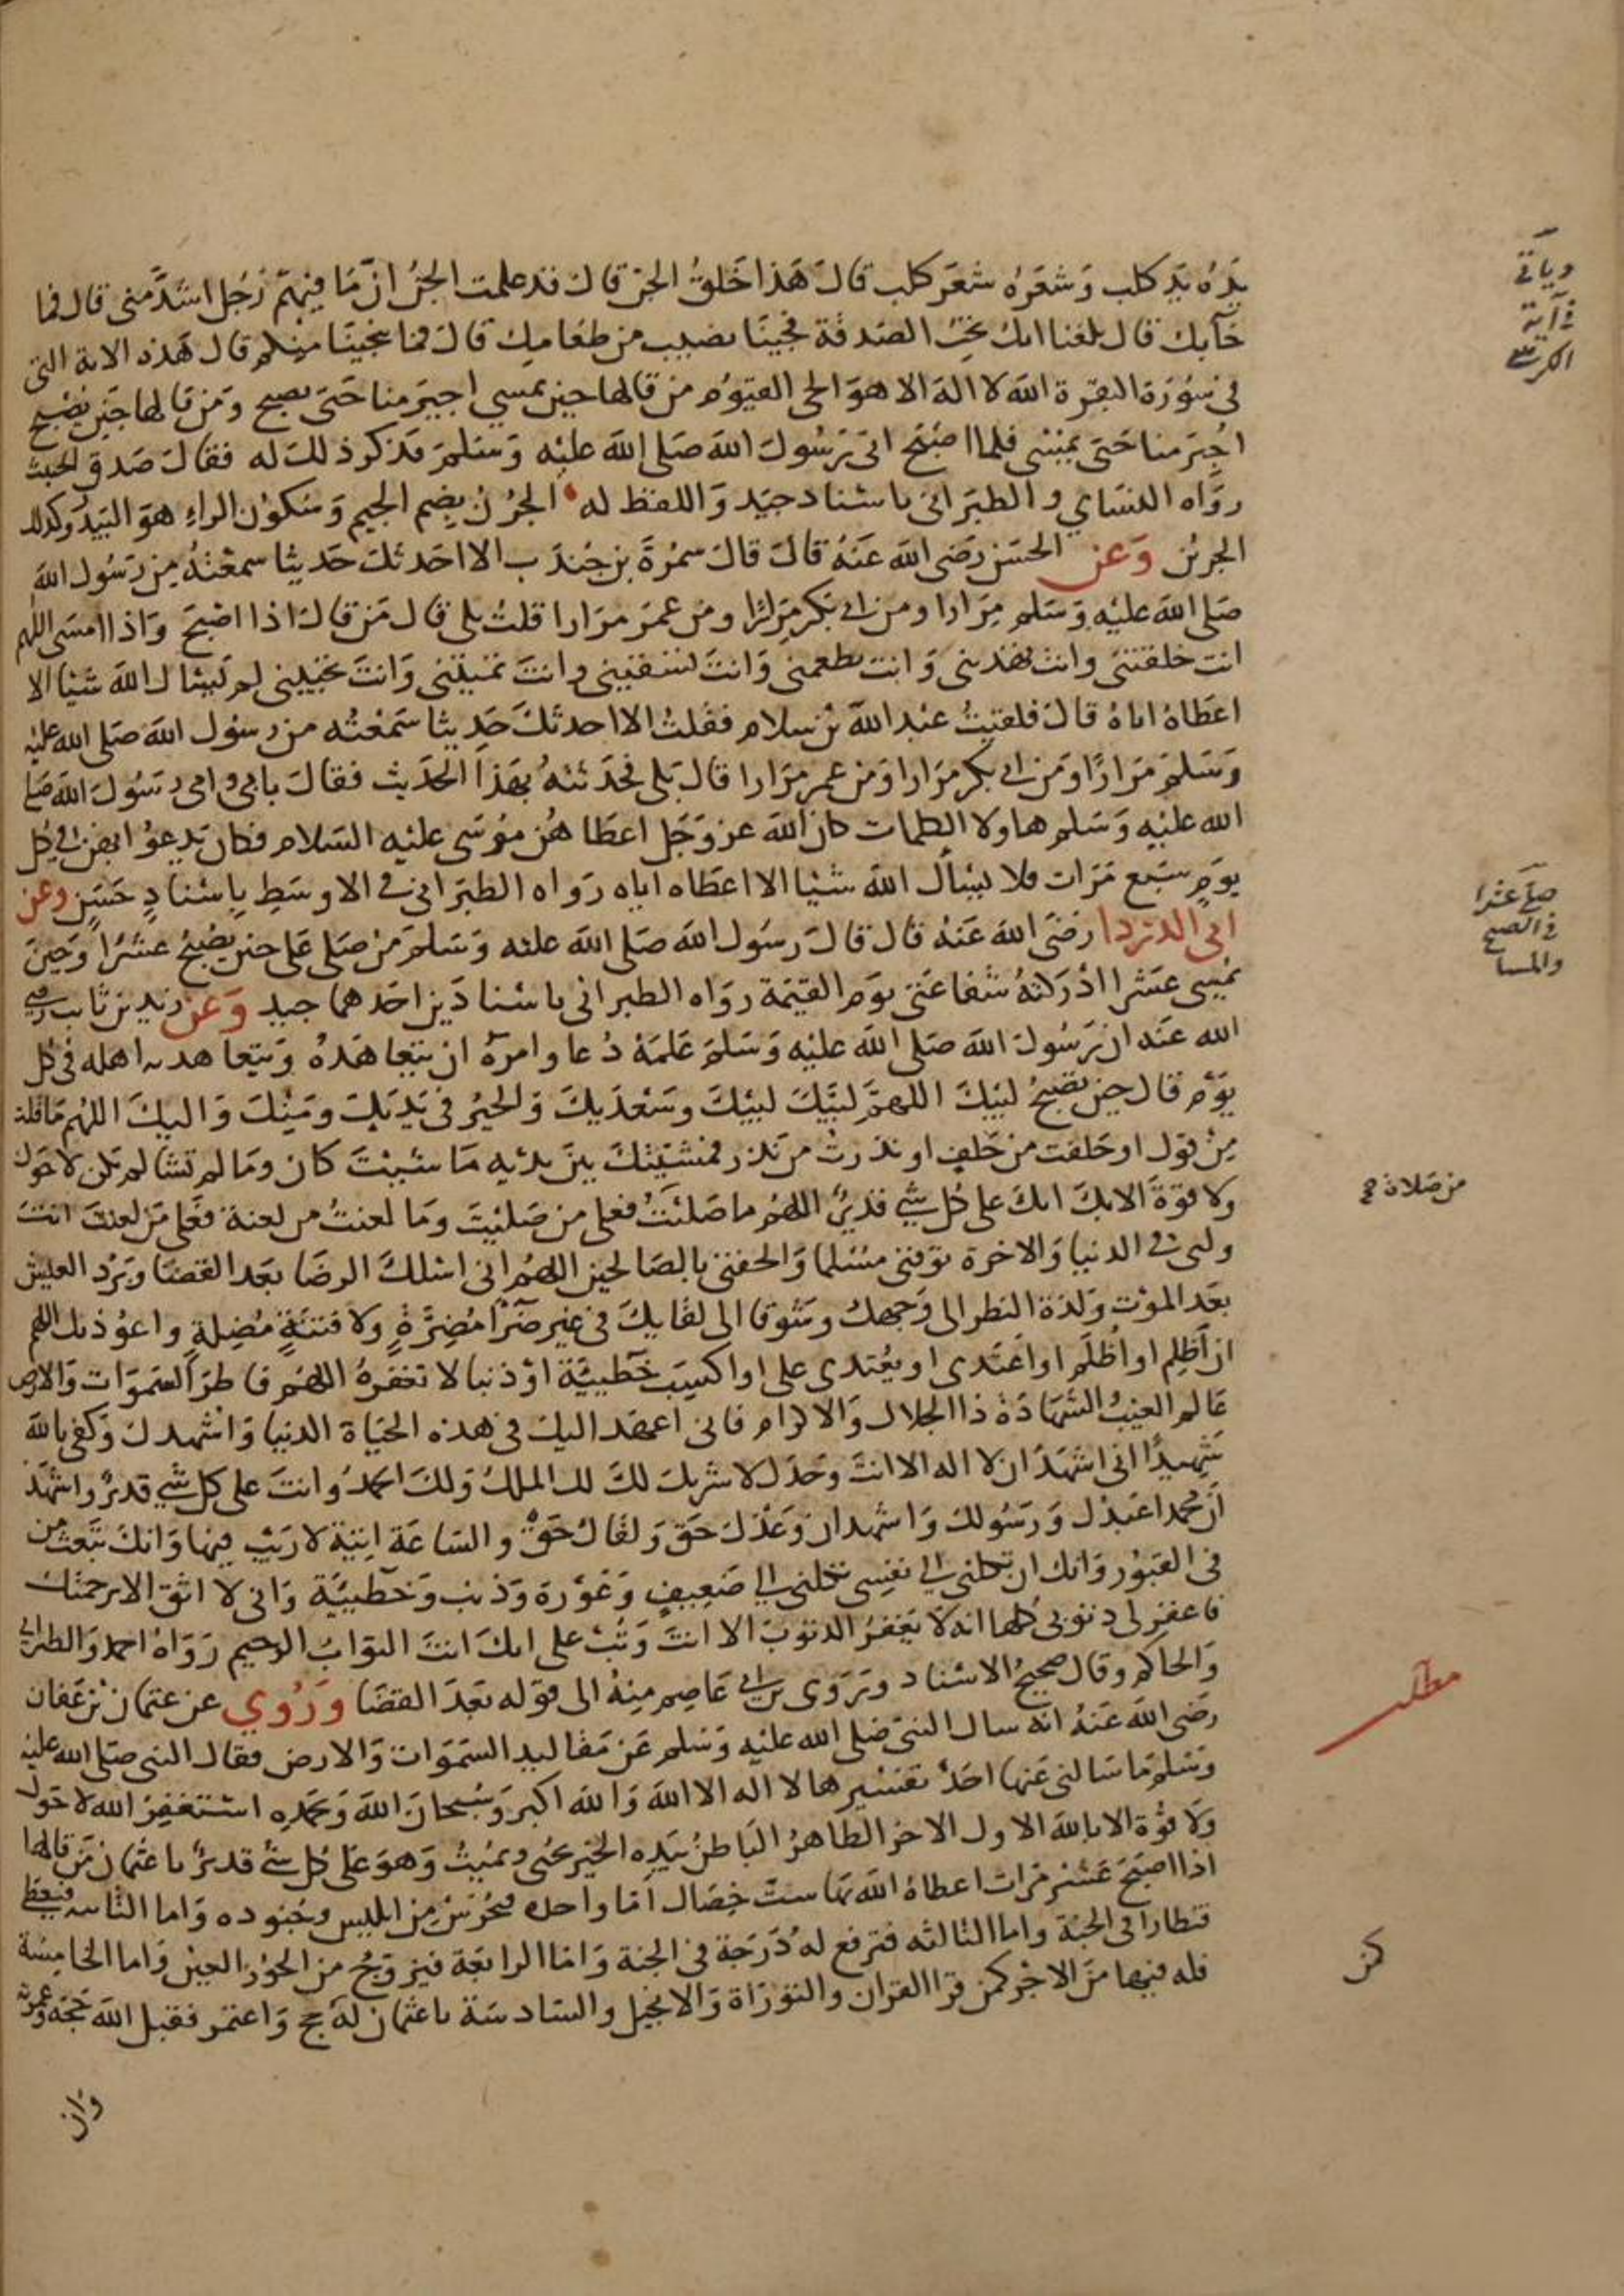 يَدُه يَد كلب وَشعَرَه شعَر كلب قالَ هَذا خَلقُ الجن قالَ قد علمت الجن ان مَا فيهم رَجُل اشدَّ مني قال فما
جَآبك قال بلغنا انك تحبُ الصَدقة فجينَا نصيب من طعَامِك قالَ فما ينجينَا منكم قال هَذه الاية التي
في سُورَة البقرة الله لا اله الا هوَ الحي القيوُم من قالها حين يمسي اجيرَ منا حَتى يصبح وَمَن قالها حِين يصْبح
اجِيرَ منا حَتى يمْسَى فلما اصْبَح اتى رَسُولَ الله صَلى الله عليْه وَسَلمَ فذكر ذلكَ له فقالَ صَدق الخبيث
روَاه النسَاي و الطبرَاني باسْناد جيَد وَاللفظ له الجُرْن بضِم الجيم وَسَكوُن الراءِ هوَ البَيدَر وكذلك
الجرين وَعن الحسَن رَضى الله عَنهُ قالَ قالَ سمُرَةَ بن جُندَب الا احَدثكَ حَديثا سمعْتهُ مِن رَسُول الله
صَلى الله عليْه وَسَلم مِرَارا ومن ابي بَكر مِرَارًا ومن عمرَ مرَارا قلتُ بلى قال مَن قالَ اذا اصْبَحَ وَاذا امسَى اللهم
انت خلقتني وانت تهدينى وَانت تطعمني وَانتَ تسْقيني وانتَ تميتني وَانتَ تحييني لم يَسْال الله شيْا الا
اعطَاهُ اياهُ قالَ فلقيتُ عبْد الله بْن سلام فقلتُ الا احدثكَ حَديثا سَمعْتُه من رسُول الله صَلى الله عليْه
وَسَلمَ مرَارًا وَمن ابي بكر مرَارا وَمن عمر مرَارا قال بَلى فحَدثتهُ بهَذا الحَديث فقالَ بابي وامى رَسُولَ الله صَلى
الله عليْه وَسَلم هاولا الكلمات كان الله عز وَجَل اعطَا هُن مُوسَى عليْه السَلام فكان يَدعوُ ابهن في كل
يوَم سبَع مَرَات فلا يسْأل الله شيْا الا اعطَاه اياه رَواه الطبرَاني في الاوسَط بِاسْنادِ حَسَن وعن
ابي الدردا رضَى الله عَنهُ قال قالَ رسُول الله صَلى الله عليْه وَسَلمَ مَن صَلى عَلي حين يصْبحُ عشرًا وَحينَ
يمْسِى عشرا ادْرَكتهُ شفاعَتي يوَم القيمَة روَاه الطبراني باسْنادَين احَدهما جيد وَعَن زيد بن ثابت رضي
الله عنَه ان رَسُولَ الله صَلى الله عليْه وَسَلمَ عَلمَهُ دُعا وامرَهُ ان يتعَاهَدهُ وَيتعَاهد به اهله في كل
يوَم قال حين يصْبحُ لبيَكَ اللهمَّ لبيَكَ لبيْكَ وسَعْدَيكَ وَالخيْرُ في يَديْكِ ومنْكَ وَاليكَ اللهم مَا قلت
مِنْ قول او حَلفت من حَلفٍ او نذرتُ من نَذر فمشيَتكَ بينَ يدَيْه مَا شيْتَ كان ومَا لم تشأ لم يَكن لا حَولَ
ولا قوةَ الا بكَ انكَ على كُل شيٍ قديرٌ اللهم ما صَليْتَ فعلى من صَليْتَ ومَا لعنتُ من لعنة فعَلى مَن لعنتَ انتَ
ولي في الدنيا وَالاخرة توَفني مسْلما وَالحقني بالصَالحين اللهم اني اسْلكَ الرضَا بعَد القضَا وَبَرْد العيْش
بعَد الموْت وَلذة النظر الى وَجهِكَ وشوقا الى لقايكَ في غيْر ضَرَّا مُضِرَّةٍ ولا فتنَةٍ مُضِلةٍ واعوُذ بك اللهم
ان اَظلِم او اُظلَم او اعتَدى او يعُتدى علي او اكسِبَ خَطيئَةَ اوْ ذنبا لا تغفرهُ اللهم فاطرَ السَمَوَات وَالارض
عَالم الغيب الشَهَادَةِ ذا الجلال وَالاكرَام فاني اعهَد اليك في هذه الحيَاة الدنيا وَاشهدكَ وَكفى بالله
شَهيدًا اني اشهَدَ ان لا اله الا انتَ وحدَك لا شريكَ لكَ لك الملكُ وَلكَ الحَمدُ وانتَ على كل شيٍ قديرٌ واشهَدُ
ان محمدا عَبدْك وَرَسُولكَ وَاشهدان وَعْدَك حَق وَلقاكَ حَقٌ والسَاعَة اتيَة لا رَيْبَ فيهَا وَانكَ تبَعَث من
في القبوُر وَانك ان تَكلني الى نفسِي تَكلني الي ضَعِيفٍ وَعَوْرَة وَذنب وَخَطيئَة وَاني لا اثق الا برحمَتك
فاغفرلى ذنوبي كلها انه لا يَغفرُ الذنوُبَ الا انتَ وَتُب على انكَ انتَ التوَابُ الرحيم رَوَاهُ احمد وَالطبراني
وَالحاكم وقال صَحيحُ الاسْناد وَيرَوى بن ابي عَاصِم منِهُ الى قوَله بَعَدَ القضَا وَرُوي عن عثمان بْن عَفان
رضى الله عَنهُ انه سال النبي صَلى الله عليْه وَسَلم عَن مَقاليد السَمَوَات وَالارض فقال النبي صَلى الله عليْه
وَسَلمَ مَا سَالني عَنهَا احَدٌ تفسْير ها لا اله الا الله وَالله اكبر وَسُبحانَ الله وَبحَمدهِ استَغفِرُ الله لا حَولَ
وَلا قوُة الا بالله الاول الاخر الظاهرُ البَاطنُ بيَدِه الخيْر يحْيي ويمُيتُ وَهوَ عَلى كُل شيْ قديرٌ يا عثمان مَن قالها
اذا اصبَحَ عَشر مرَات اعطاهُ الله بهَا ستَّ خِصَال اَمَا واحدة فيُحْرَسُ مِن ابليس وَجُنوده وَاما الثانيه فيعطى
قنطارا في الجنة واما الثالثه فترفع لهُ دَرَجَة في الجنة وَامَا الرابعَة فيَزوجُ من الحوُر العيْن وَاما الخامِسَة
فله فيها مَن الاجْر كمن قرا القران والتوْرَاة وَالانجيْل والسَادسَة يا عثمان لهُ كمن حج وَاعتمَر فقبل الله حَجتهُ وعمرته
وان
وياتي
في اية
الكرسي
صلى عشرا
في الصبح
والمسا
من صلاة صح
مطلب